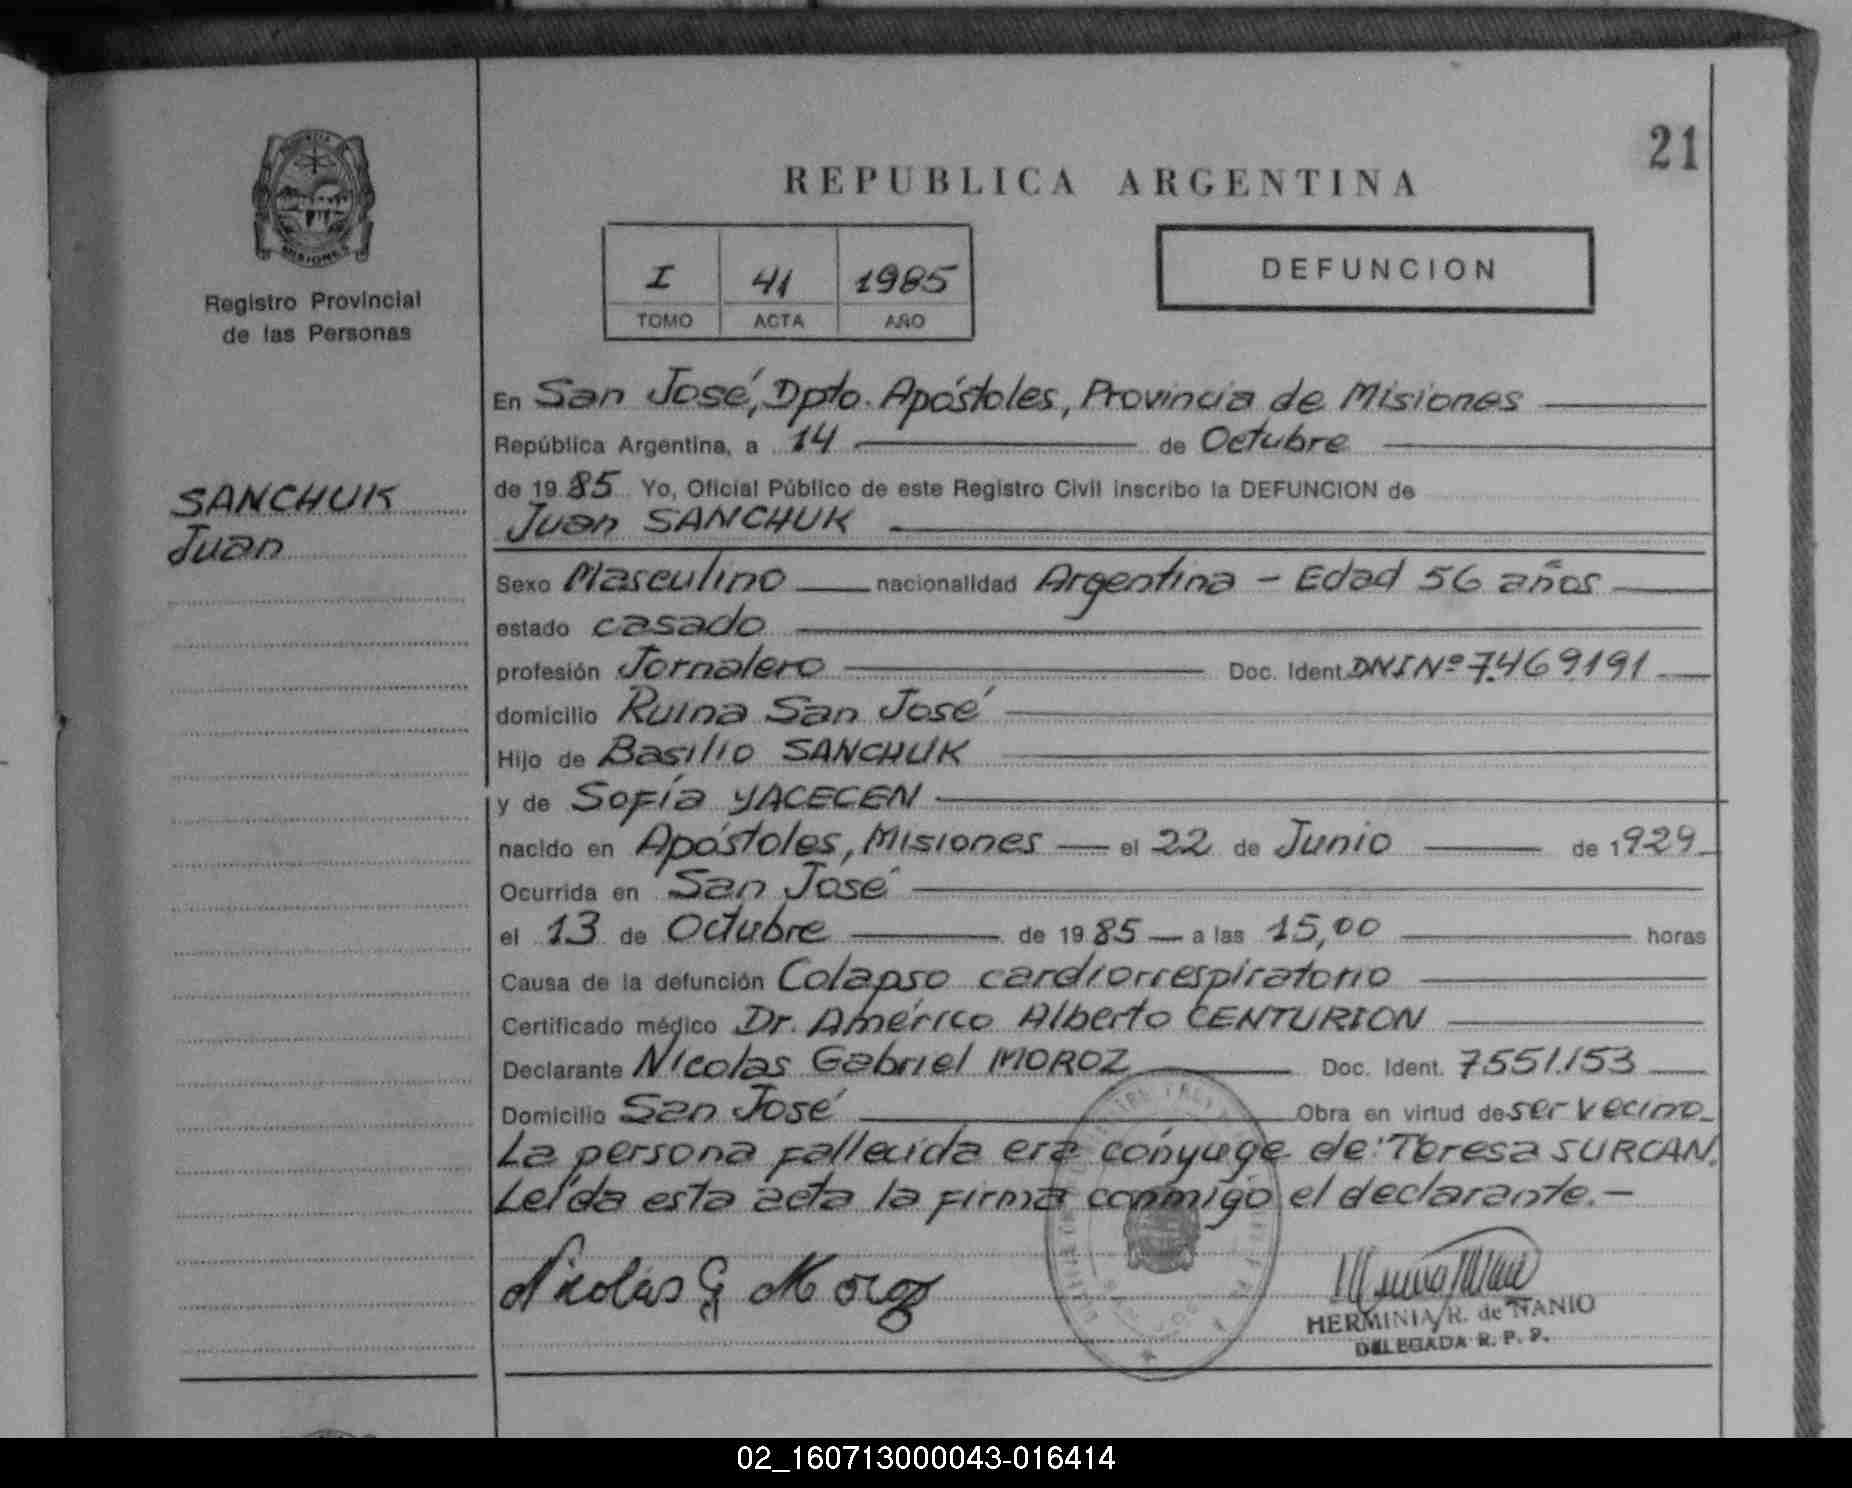 21
REPUBLICA ARGENTINA
MISIONES
Registro Provincial
de las Personas
I 41 1985
TOMO ACTA AÑO
DEFUNCION
SANCHUK
Juan
En San José, Dpto. Apóstoles, Provincia de Misiones
República Argentina, a 14 de Octubre
de 1985 Yo, Oficial Público de este Registro Civil inscribo la DEFUNCION de
Juan SANCHUK
Sexo Masculino nacionalidad Argentina - Edad 56 años
estado casado
profesión Jornalero Doc. Ident. DNI Nº 7.469.191
domicilio Ruina San José
Hijo de Basilio SANCHUK
y de Sofía YACECEN
nacido en Apóstoles, Misiones el 22 de Junio de 1929
Ocurrida en San José
el 13 de Octubre de 1985 a las 15,00 horas
Causa de la defunción Colapso cardiorrespiratorio
Certificado médico Dr. Américo Alberto CENTURION
Declarante Nicolas Gabriel MOROZ Doc. Ident. 7.551.153
Domicilio San José Obra en virtud de ser vecino
La persona fallecida era cónyuge de: Teresa SURCAN.
Leída esta acta la firma conmigo el declarante.-
Nicolás G Moroz
HERMINIA R. de NANIO
DELEGADA R. P. P.
02_160713000043-016414